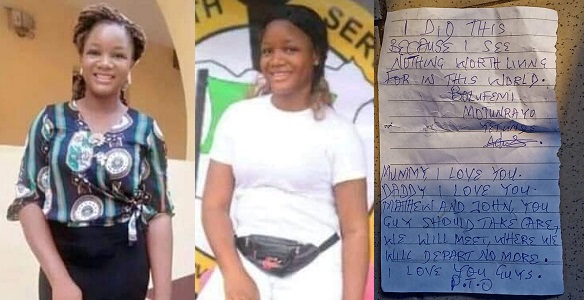 SER
I DID THIS
BECAUSE I SEE
NOTHING WORTH LIVING
FOR IN THIS WORLD.
MOTUNRAYO
MUMMY I LOVE YOU.
DADDY I LOVE YOU.
MATHEW AND JOHN, YOU
GUY SHOULD TAKE CARE,
WE WILL MEET, WHERE WE
WILL DEPART NO MORE.
I LOVE YOU GUYS.
P.T.O